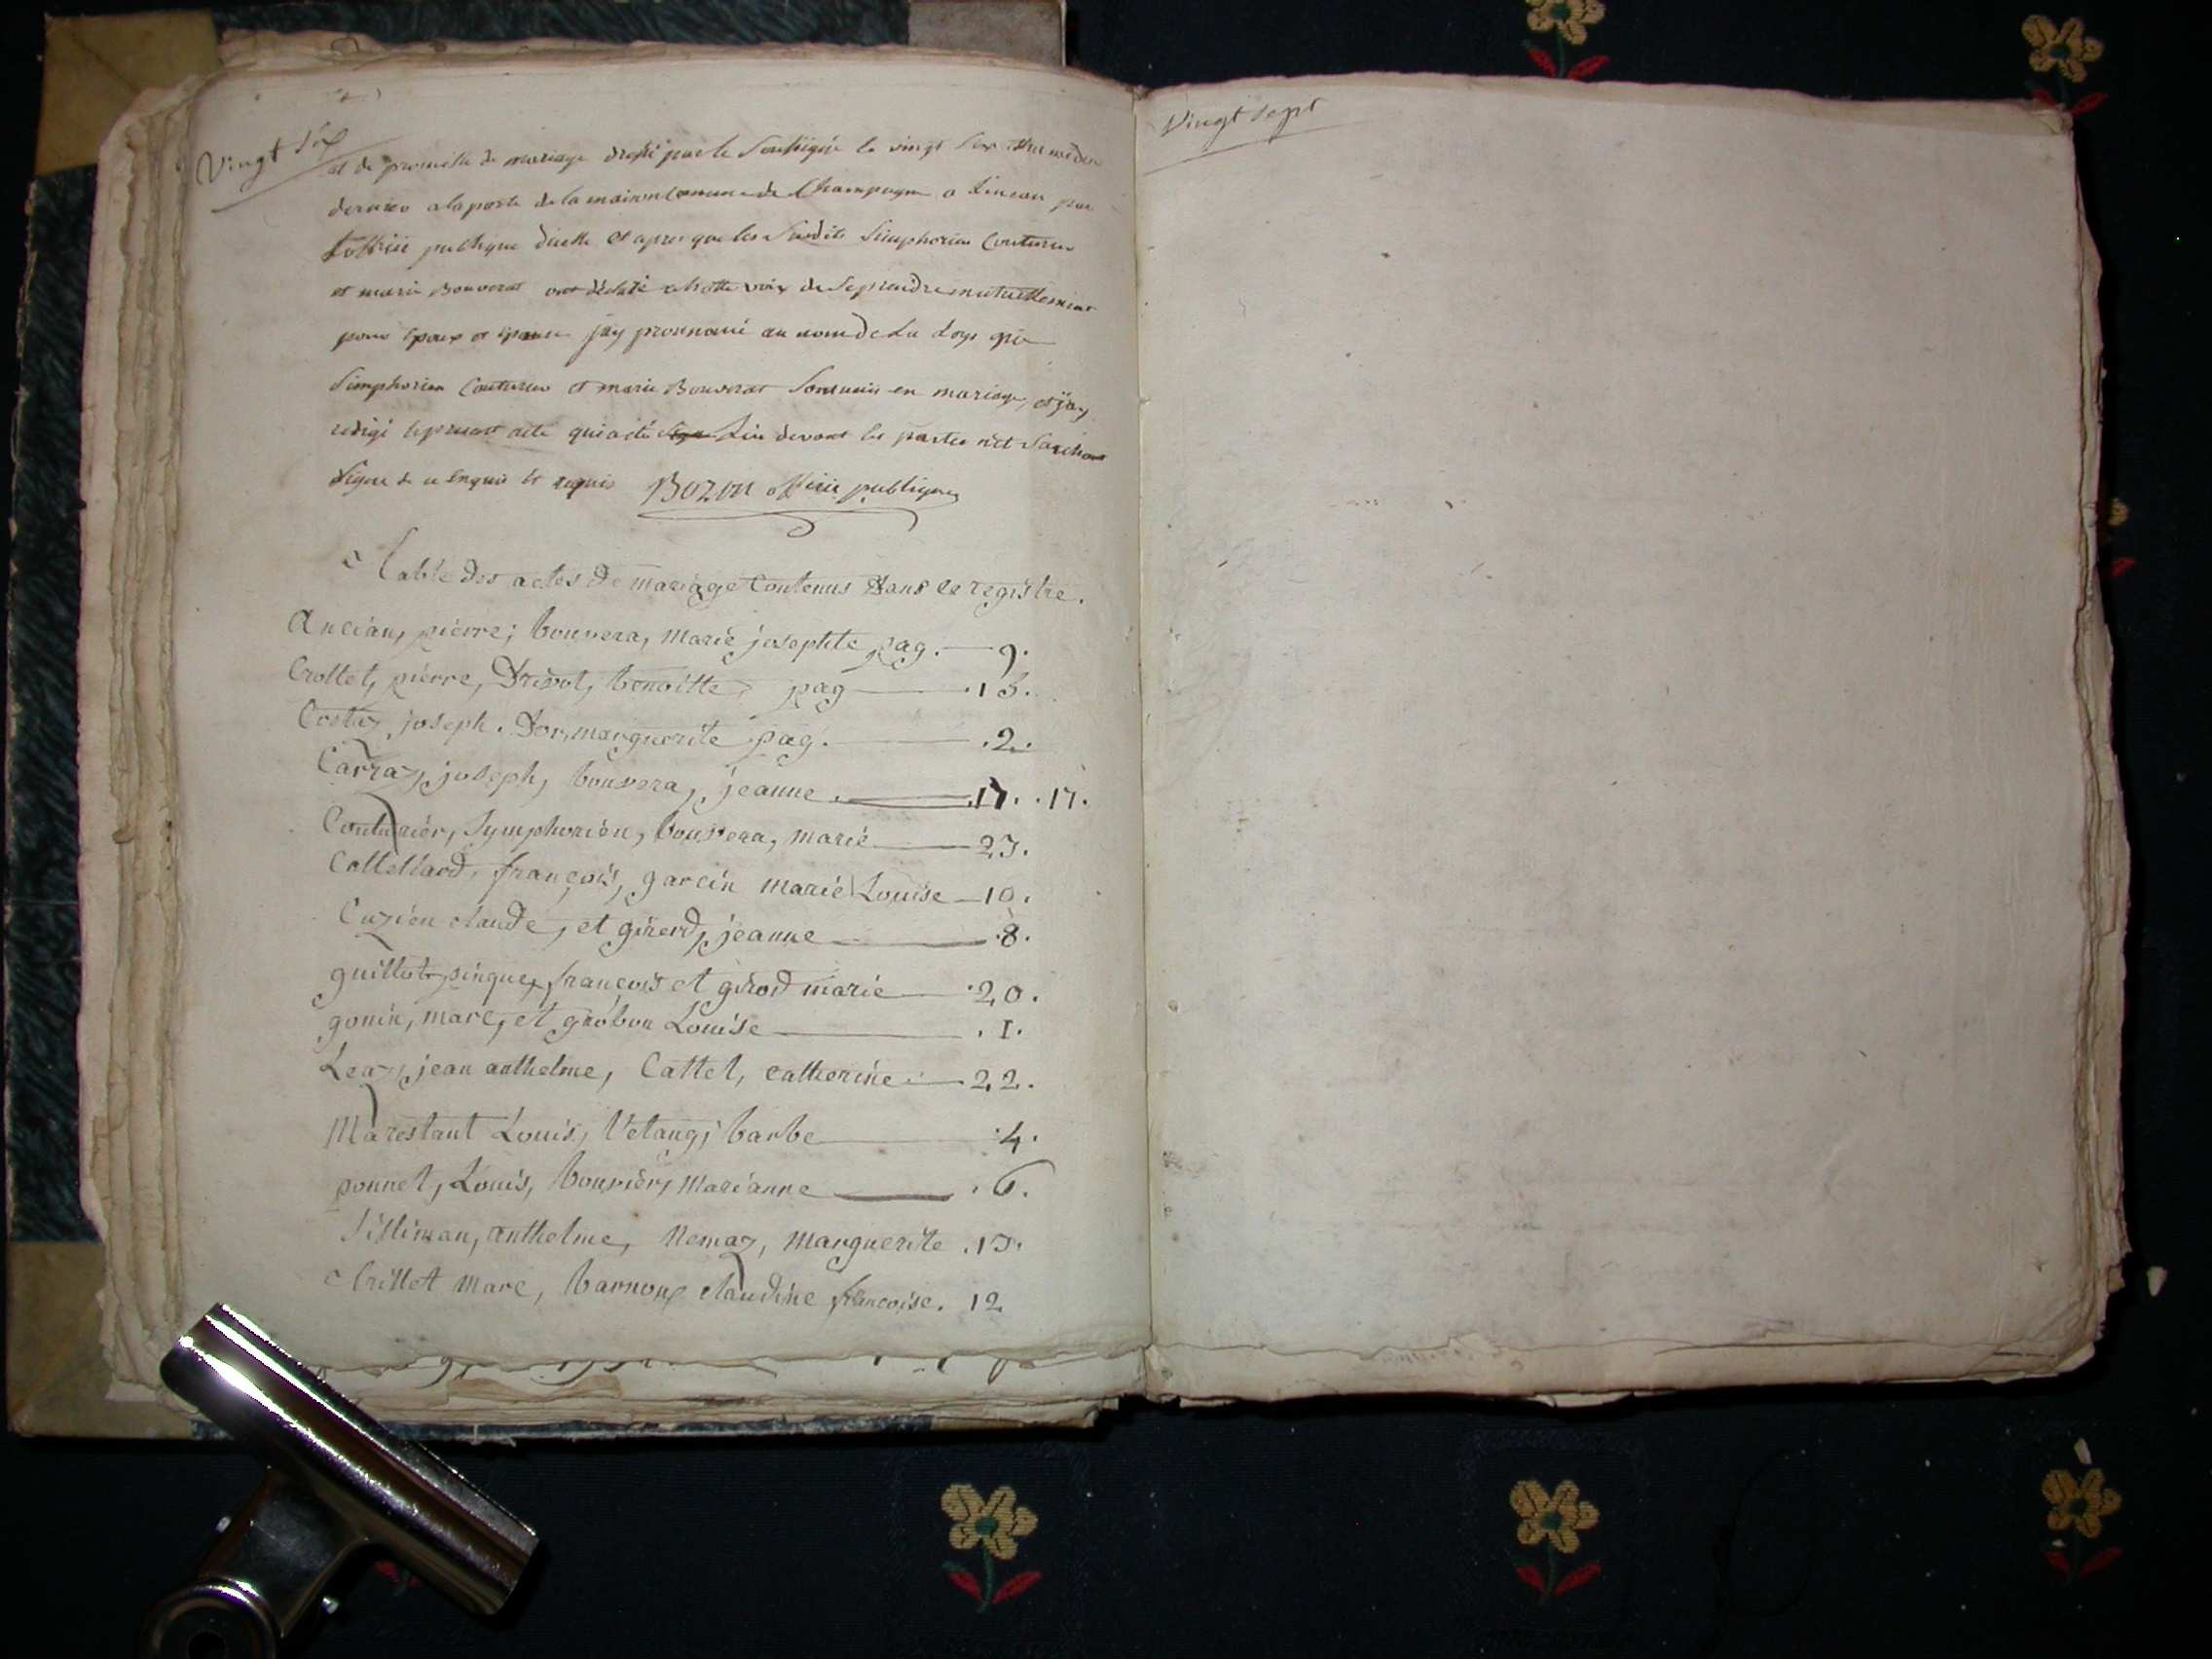 Vingt six
et de promesse de mariage dressé par le soussigné le vingt six thermidor
dernier a la porte de la maison comune de Champagne a
publique et apres que les susdits Simphorien Couturier
et marie Bouverat ont déclaré a hotte voix de se prendre mutuellement
pour epoux et epouse jay prononcé au nom de la Loys que
Simphorien Couturier et marie Bouverat sont unis en mariage, et jay
redigé le present acte qui a été Lu devant les parties n'et sachant
signe de ce enquis et requis Bozon officie publique
Table des actes de mariage contenus dans ce registre.
Ancian, pierre; bouvera, marie josephte pag. 9.
Crottet, pierre, Drevot, benoitte, pag .15.
Costaz joseph. Dor, marguerite pag. .2.
Carraz, joseph, bouvera, jeanne .17. .17.
Couturiér, Symphorién, bouvera, marie 23.
Collettard, françois, garcin marie Louise 10.
Cuzien claude, et girerd, jeanne .8.
guillot pinque, françois et girod marie .20.
gonin, marc, et grobon Louise .1.
Leaz, jean anthelme, Cattet, catherine 22.
Marestant Louis, Vetang, barbe .4.
ponnet, Louis, bouvier, marianne .6.
Silliman, anthelme, Nemaz, marguerite .13.
Trillet marc, barnoux claudine françoise. 12
Vingt sept